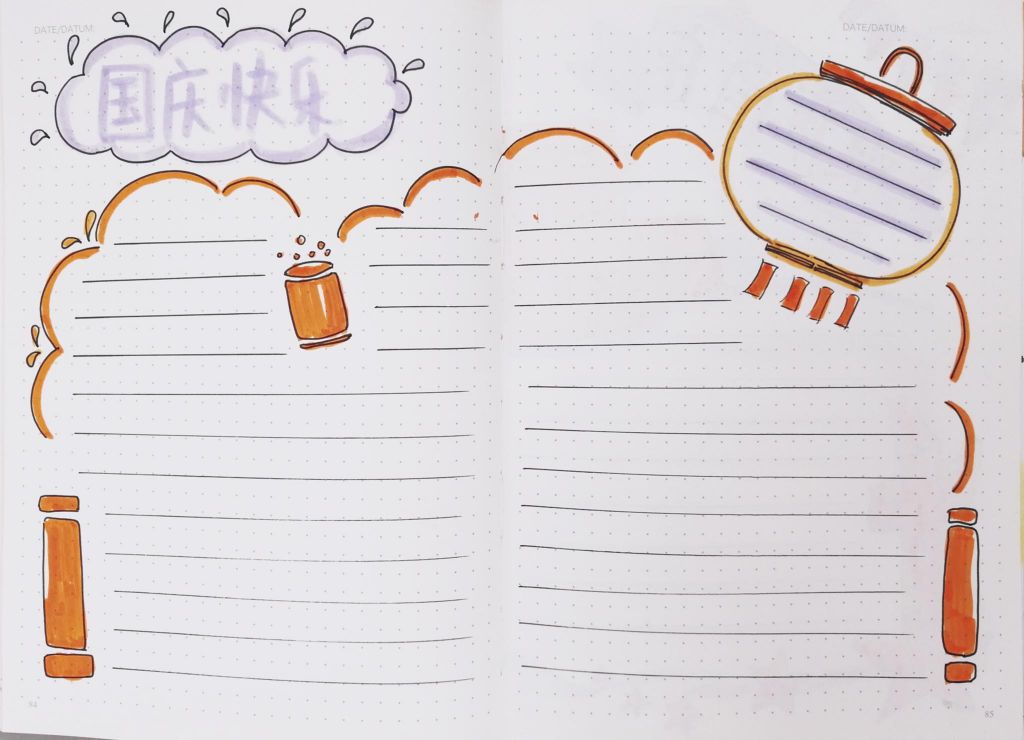 DATE/DATUM:
DATE/DATUM:
国庆快乐
84
85